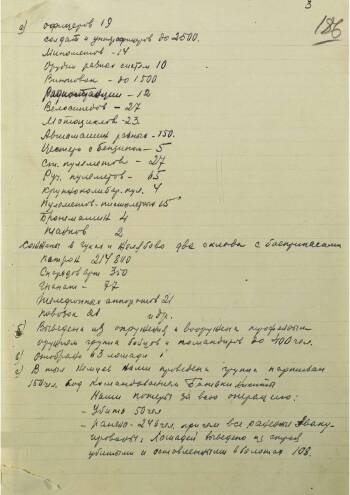 3
186
а) офицеров 19
солдат и унтерофицеров до 2500.
Минометов - 14
Орудий разных систем 10
Винтовок - до 1500
Радиостанции - 12
Велосипедов - 27
Мотоциклов - 23
Автомашин разных - 150.
Цистерн с бензином - 5
Ст. пулеметов - 27
Руч. пулеметов - 65
Крупнокалибер. пул. 4
Пулеметов-пистолетов 65
Бронемашин 4
Танков 2
два склада с боеприпасами
Патрон 214 800
Снарядов арт 350
Гранат - 77
Телефонных аппаратов 21
Повозок 21 и др.
б) Выведена из окружения и вооружена трофейным
оружием группа бойцов и командиров до 400 чел.
в) Отобрано 63 лошади
г) В тыл немцев нами проведена группа партизан
150 чел. под командованием
Наши потери за всю операцию:
- Убито 50 чел
- ранено - 246 чел. причем все раненые эваку-
ированы. Лошадей выведено из строя
убитыми и оставленными в болотах 108.